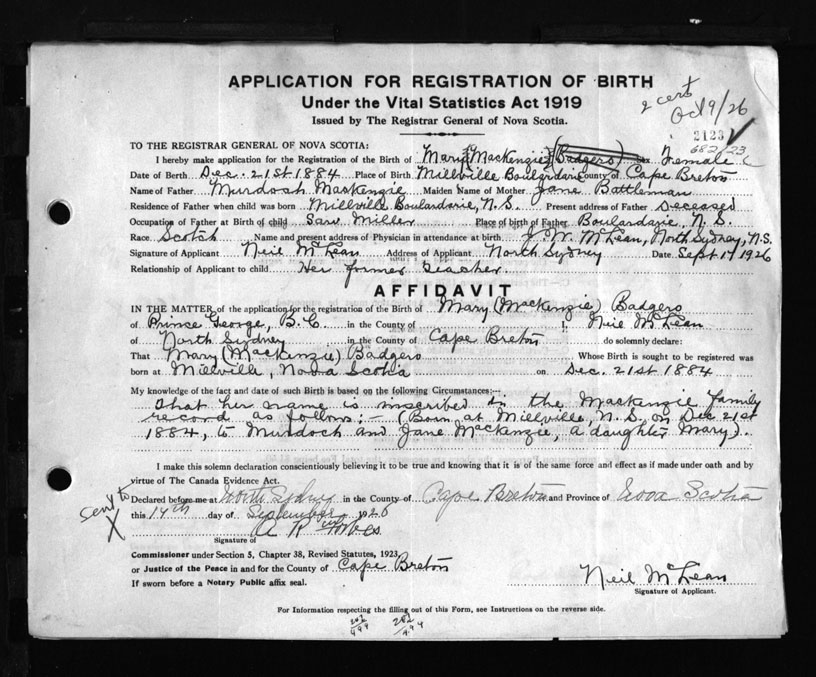 APPLICATION FOR REGISTRATION OF BIRTH
Under the Vital Statistics Act 1919
Issued by The Registrar General of Nova Scotia.
2 cert
Oct 9/26
2123
682/23
TO THE REGISTRAR GENERAL OF NOVA SCOTIA:
I hereby make application for the Registration of the Birth of Mary (MacKenzie) (Badgers) Sex Female
Date of Birth Dec. 21st 1884 Place of Birth Millville Boulardarie County of Cape Breton
Name of Father Murdoch MacKenzie Maiden Name of Mother Jane Battleman
Residence of Father when child was born Millville Boulardarie, N.S. Present address of Father Deceased
Occupation of Father at Birth of child Saw Miller Place of birth of Father Boulardarie, N.S.
Race Scotch Name and present address of Physician in attendance at birth J. W. McLean, North Sydney, N.S.
Signature of Applicant Neil McLean Address of Applicant North Sydney Date Sept 17 1926
Relationship of Applicant to child Her former Teacher
AFFIDAVIT
IN THE MATTER of the application for the registration of the Birth of Mary (MacKenzie) Badgers
of Prince George, B.C. in the County of I, Neil McLean
of North Sydney in the County of Cape Breton do solemnly declare:
That Mary (MacKenzie) Badgers Whose Birth is sought to be registered was
born at Millville, Nova Scotia on Dec. 21st 1884
My knowledge of the fact and date of such Birth is based on the following Circumstances:—
That her name is inscribed in the MacKenzie family
record as follows:- (Born at Millville, N.S. on Dec 21st
1884, to Murdoch and Jane MacKenzie, a daughter Mary).
I make this solemn declaration conscientiously believing it to be true and knowing that it is of the same force and effect as if made under oath and by
virtue of The Canada Evidence Act.
Declared before me at North Sydney in the County of Cape Breton and Province of Nova Scotia
sent to
X
this 17th day of September 1926
A R Forbes
Signature of
Commissioner under Section 5, Chapter 38, Revised Statutes, 1923,
or Justice of the Peace in and for the County of Cape Breton
If sworn before a Notary Public affix seal.
Neil McLean
Signature of Applicant.
For Information respecting the filling out of this Form, see Instructions on the reverse side.